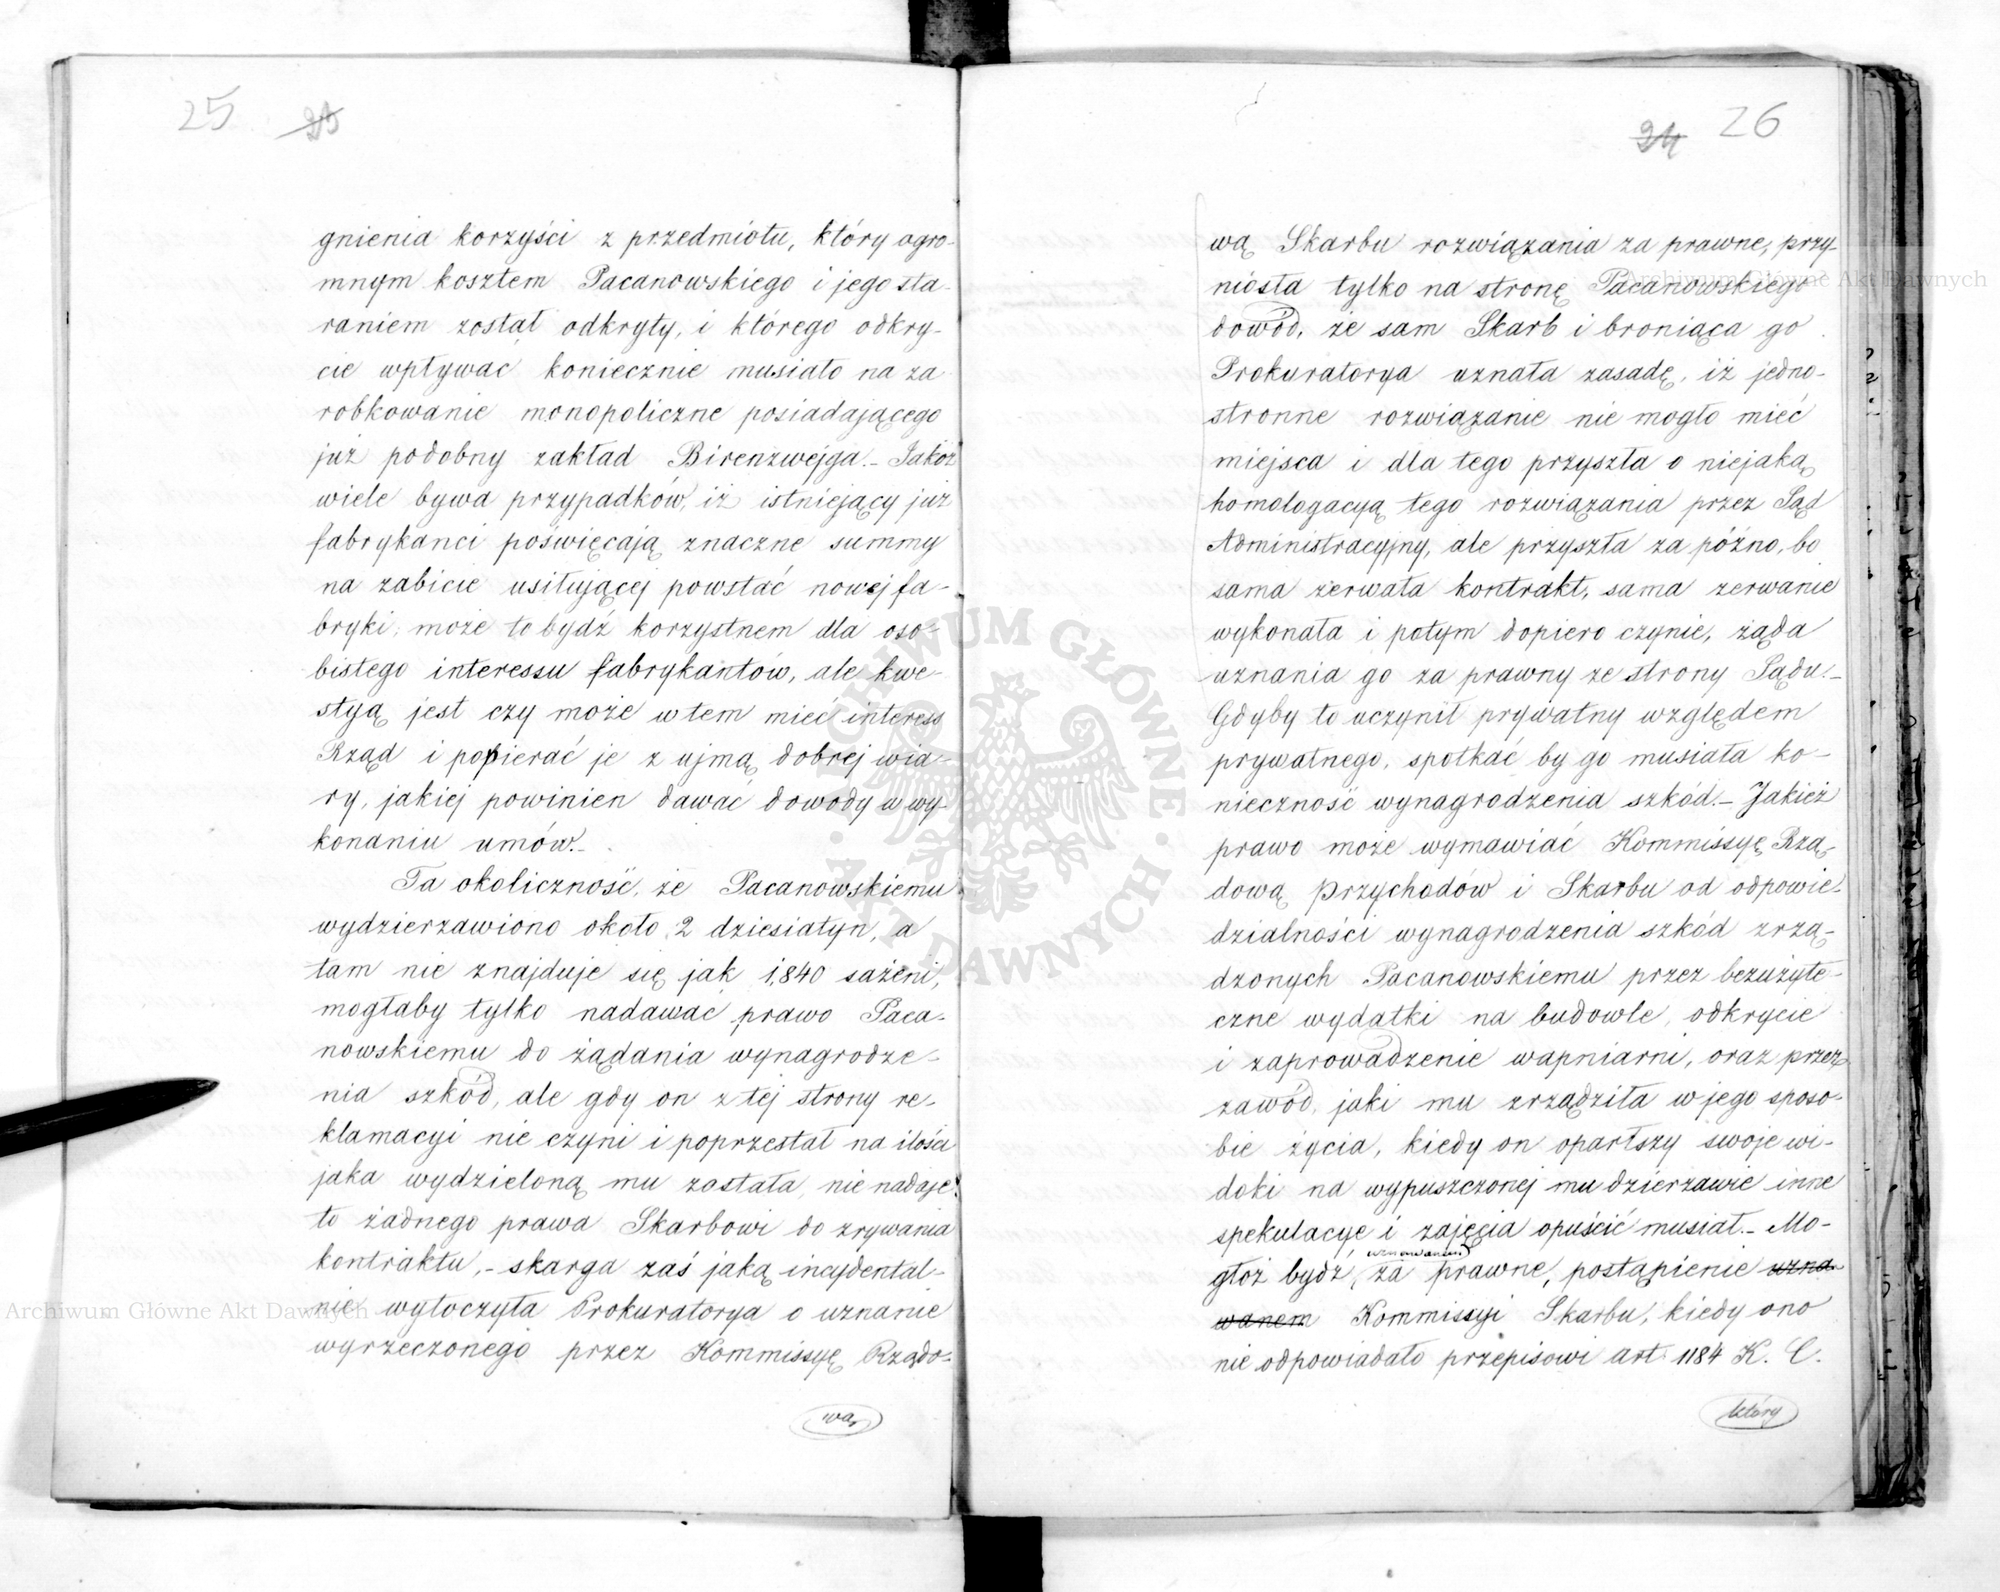 25 25
gnienia korzyści z przedmiotu, który ogro-
mnym kosztem Pacanowskiego i jego sta-
raniem został odkryty, i którego odkry-
cie wpływac koniecznie musiało na za
robkowanie monopoliczne posiadającego
już podobny zakład Birenzwejga.- Jakoż
wiele bywa przypadków, iż istniejący już
fabrykanci poświęcają znaczne summy
na zabicie usiłującej powstać nowej fa-
bryki; może to bydź korzystnem dla oso-
bistego interessu fabrykantów, ale kwe-
styą jest czy może w tem mieć interess
Rząd i popierać je z ujmą dobrej wia-
ry, jakiej powinien dawać dowody w wy-
konaniu umów.-
Ta okoliczność, że Pacanowskiemu
wydzierzawiono około 2 dziesiatyn, a
tam nie znajduje się jak 1,840 sażeni,
mogłaby tylko nadawać prawo Paca-
nowskiemu do żądania wynagrodze-
nia szkód, ale gdy on z tej strony re-
klamacyi nie czyni i poprzestał na ilości
jaka wydzieloną mu została, nie nadaje
to żadnego prawa Skarbowi do zrywania
kontraktu,- skarga zaś jaką incydental-
nie wytoczyła Prokuratorya o uznanie
wyrzeczonego przez Kommissyę Rządo-
wą
24 26
wą Skarbu rozwiązania za prawne, przy-
niosła tylko na stronę Pacanowskiego
dowód, że sam Skarb i broniąca go
Prokuratorya uznała zasadę, iż jedno-
stronne rozwiązanie nie mogło mieć
miejsca i dla tego przyszła o niejaką
homologacyą tego rozwiązania przez Sąd
Administracyjny, ale przyszła za późno, bo
sama zerwała kontrakt, sama zerwanie
wykonała i potym dopiero czynie, żąda
uznania go za prawny ze strony Sądu.-
Gdyby to uczynił prywatny względem
prywatnego, spotkać by go musiała ko-
nieczność wynagrodzenia szkód.- Jakież
prawo może wymawiać Kommissyę Rzą-
dową Przychodów i Skarbu od odpowie-
dzialności wynagrodzenia szkód zrzą-
dzonych Pacanowskiemu przez bezużyte-
czne wydatki na budowle, odkrycie
i zaprowadzenie wapniarni, oraz przez
zawód, jaki mu zrządziła w jego sposo-
bie życia, kiedy on oparłszy swoje wi-
doki na wypuszczonej mu dzierzawie inne
spekulacye i zajęcia opuścić musiał.- Mo-
uznawanem
głoż bydź za prawne, postąpienie uzna-
wanem Kommissyi Skarbu, kiedy ono
nie odpowiadało przepisowi art. 1184 K. C.
który
Archiwum Główne Akt Dawnych
Archiwum Główne Akt Dawnych
ARCHIWUM GŁÓWNE AKT DAWNYCH